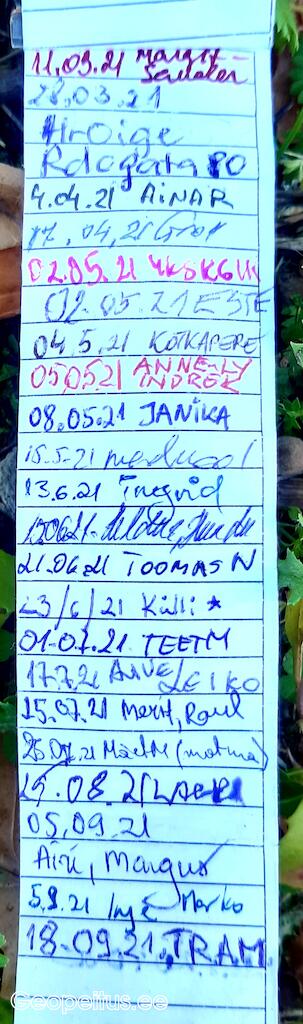 11.03.21 Margit-
Sander
28.03.21
Hroige
4.04.21 AiNAR
17.04.21
02.05.21
02.05.21 ESTE
04.5.21 KOTKAPERE
05.05.21 ANNE-LY
INDREK
08.05.21 JANIKA
15.5-21
13.6.21 Ingrid
21.06.21 TOOMAS N
23/6/21 Külli ★
01.07.21 TEETM
17.7.21 AIVE/LEIKO
25.07.21 Merit, Raul
25.07.21 Märthe (matma)
29.08.21
05.09.21
Airi, Margus
5.9.21 Inge Marko
18.09.21. TRAM
Geopeitus.ee